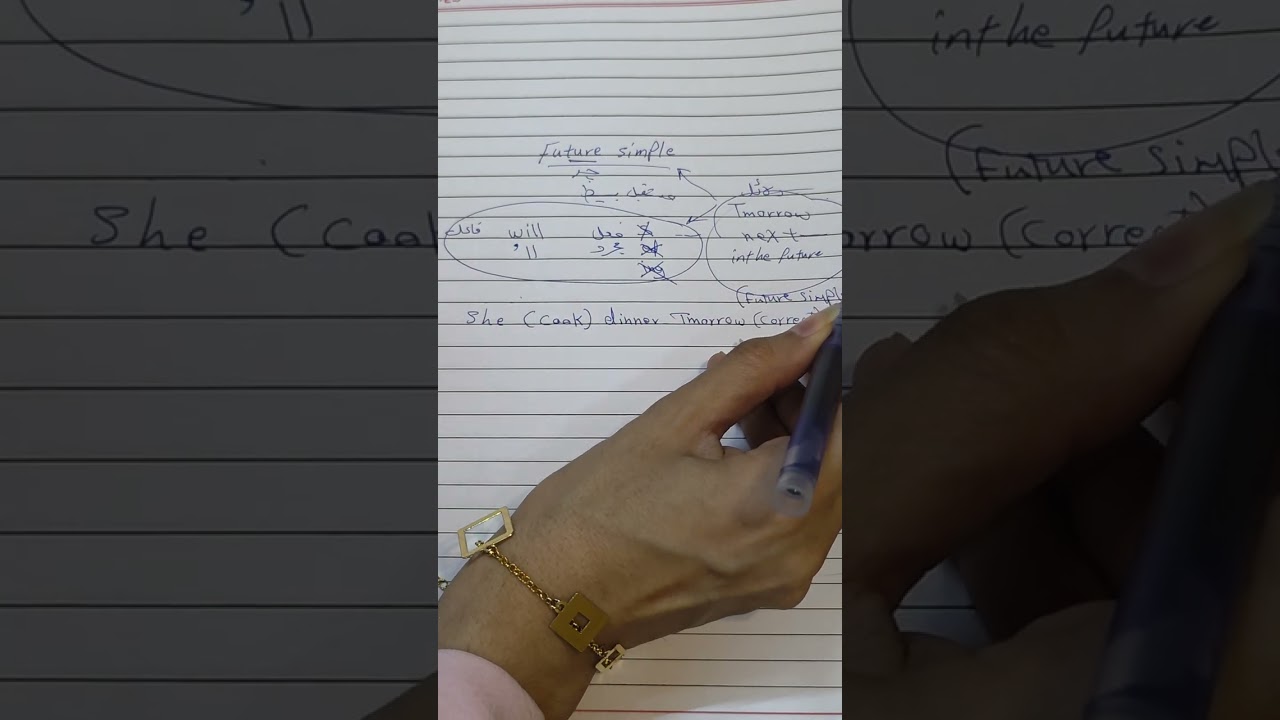 Future simple
مستقبل بسيط
دلائل
Tmorrow
فاعل will فعل
next
'll مجرد
in the future
(Future simple
She (Cook) dinner Tmorrow (Correct)